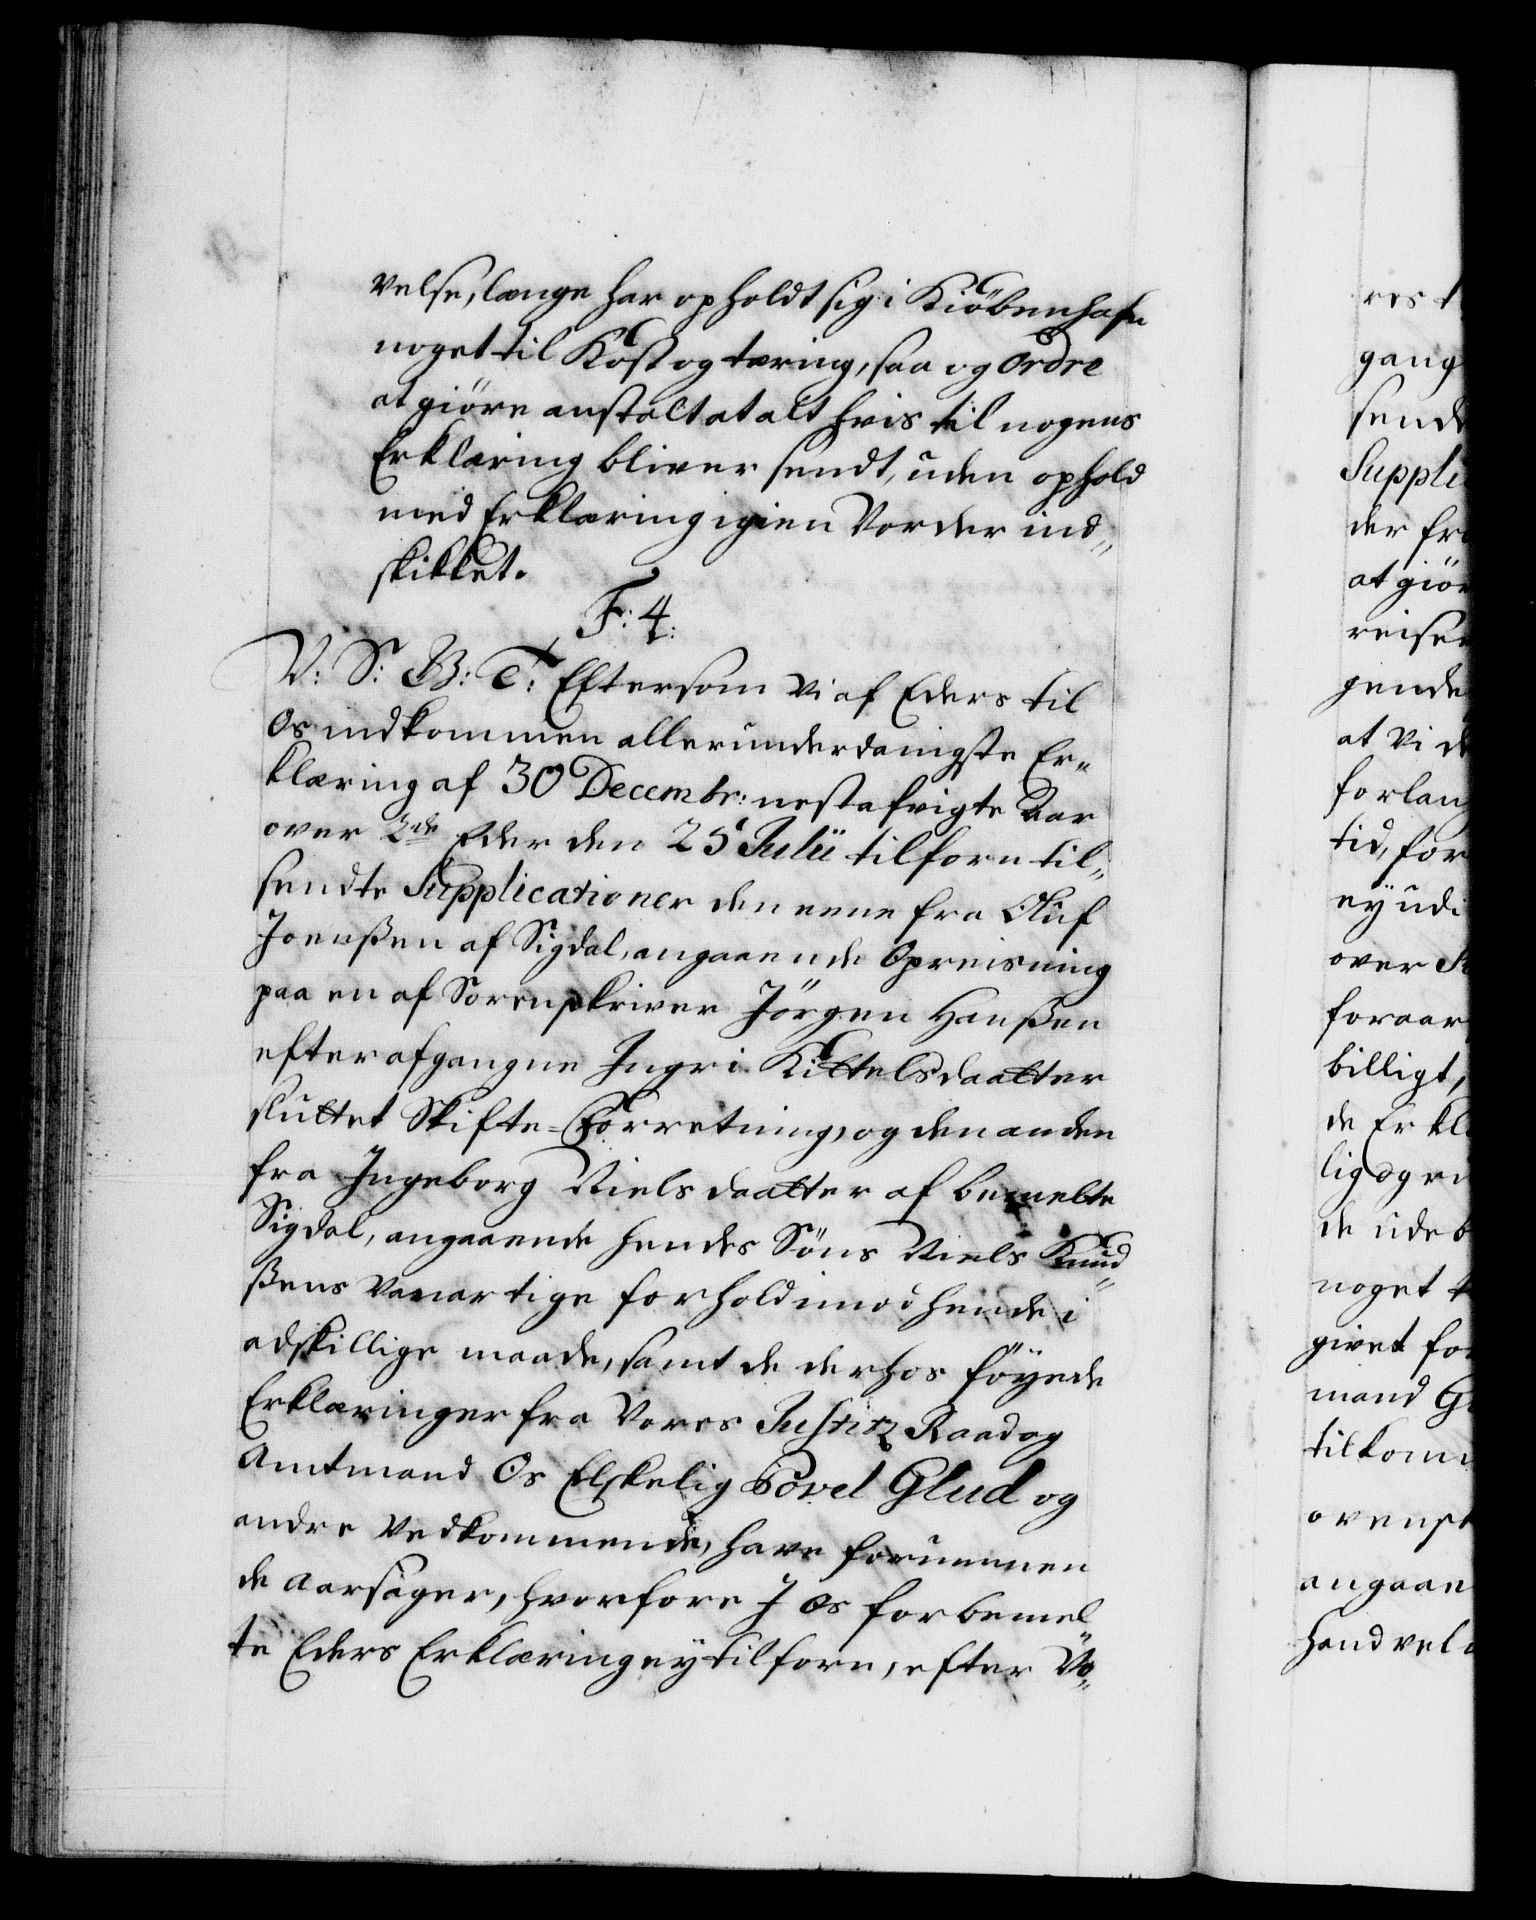 velse, længe har opholdt sig i Kiöbenhafn
noget til Kost og tæring, saa og Ordre
at giöre anstalt at alt hvis til nogens
Erklæring bliver sendt, uden ophold
med Erklæring igien Vorder ind„
skikket.
F: 4:
V: S: B: T: Eftersom Vi af Eders til
Os indkommen allerunderdanigste Er„
klæring af 30 Decembr: nestafvigte Aar
over 2de Eder den 25 Julii tilforn til„
sendte Supplicationer den eene fra Oluf
Joenßen af Sigdal, angaaende Opreisning
paa en af Sorenskriver Jörgen Hanßen
efter afgangne Ingri Kittelsdaatter
sluttet Skifte-Forretning, og den anden
fra Ingeborg Nielsdaatter af bemelte
Sigdal, angaaende hendes Söns Niels Knud„
ßens Vanartige forhold imod hende i
adskillige maade, samt de derhos föyede
Erklæringer fra Vores Justitz Raad og
Amtmand Os Elskelig Povel Glud og
andre Vedkommende, have fornummen
de Aarsager, hvorfore J Os forbemel„
te Eders Erklæring ey tilforn, efter Vo„
res t
gang
sendt
Suppli
der fr
at giör
reise
gende
at Vi d
forlan
tid, for
ey udi
over S
foraar
billigt,
de Erkl
lig og e
de udeb
noget t
givet for
mand G
tilkom
ovenst
angaan
hand vel